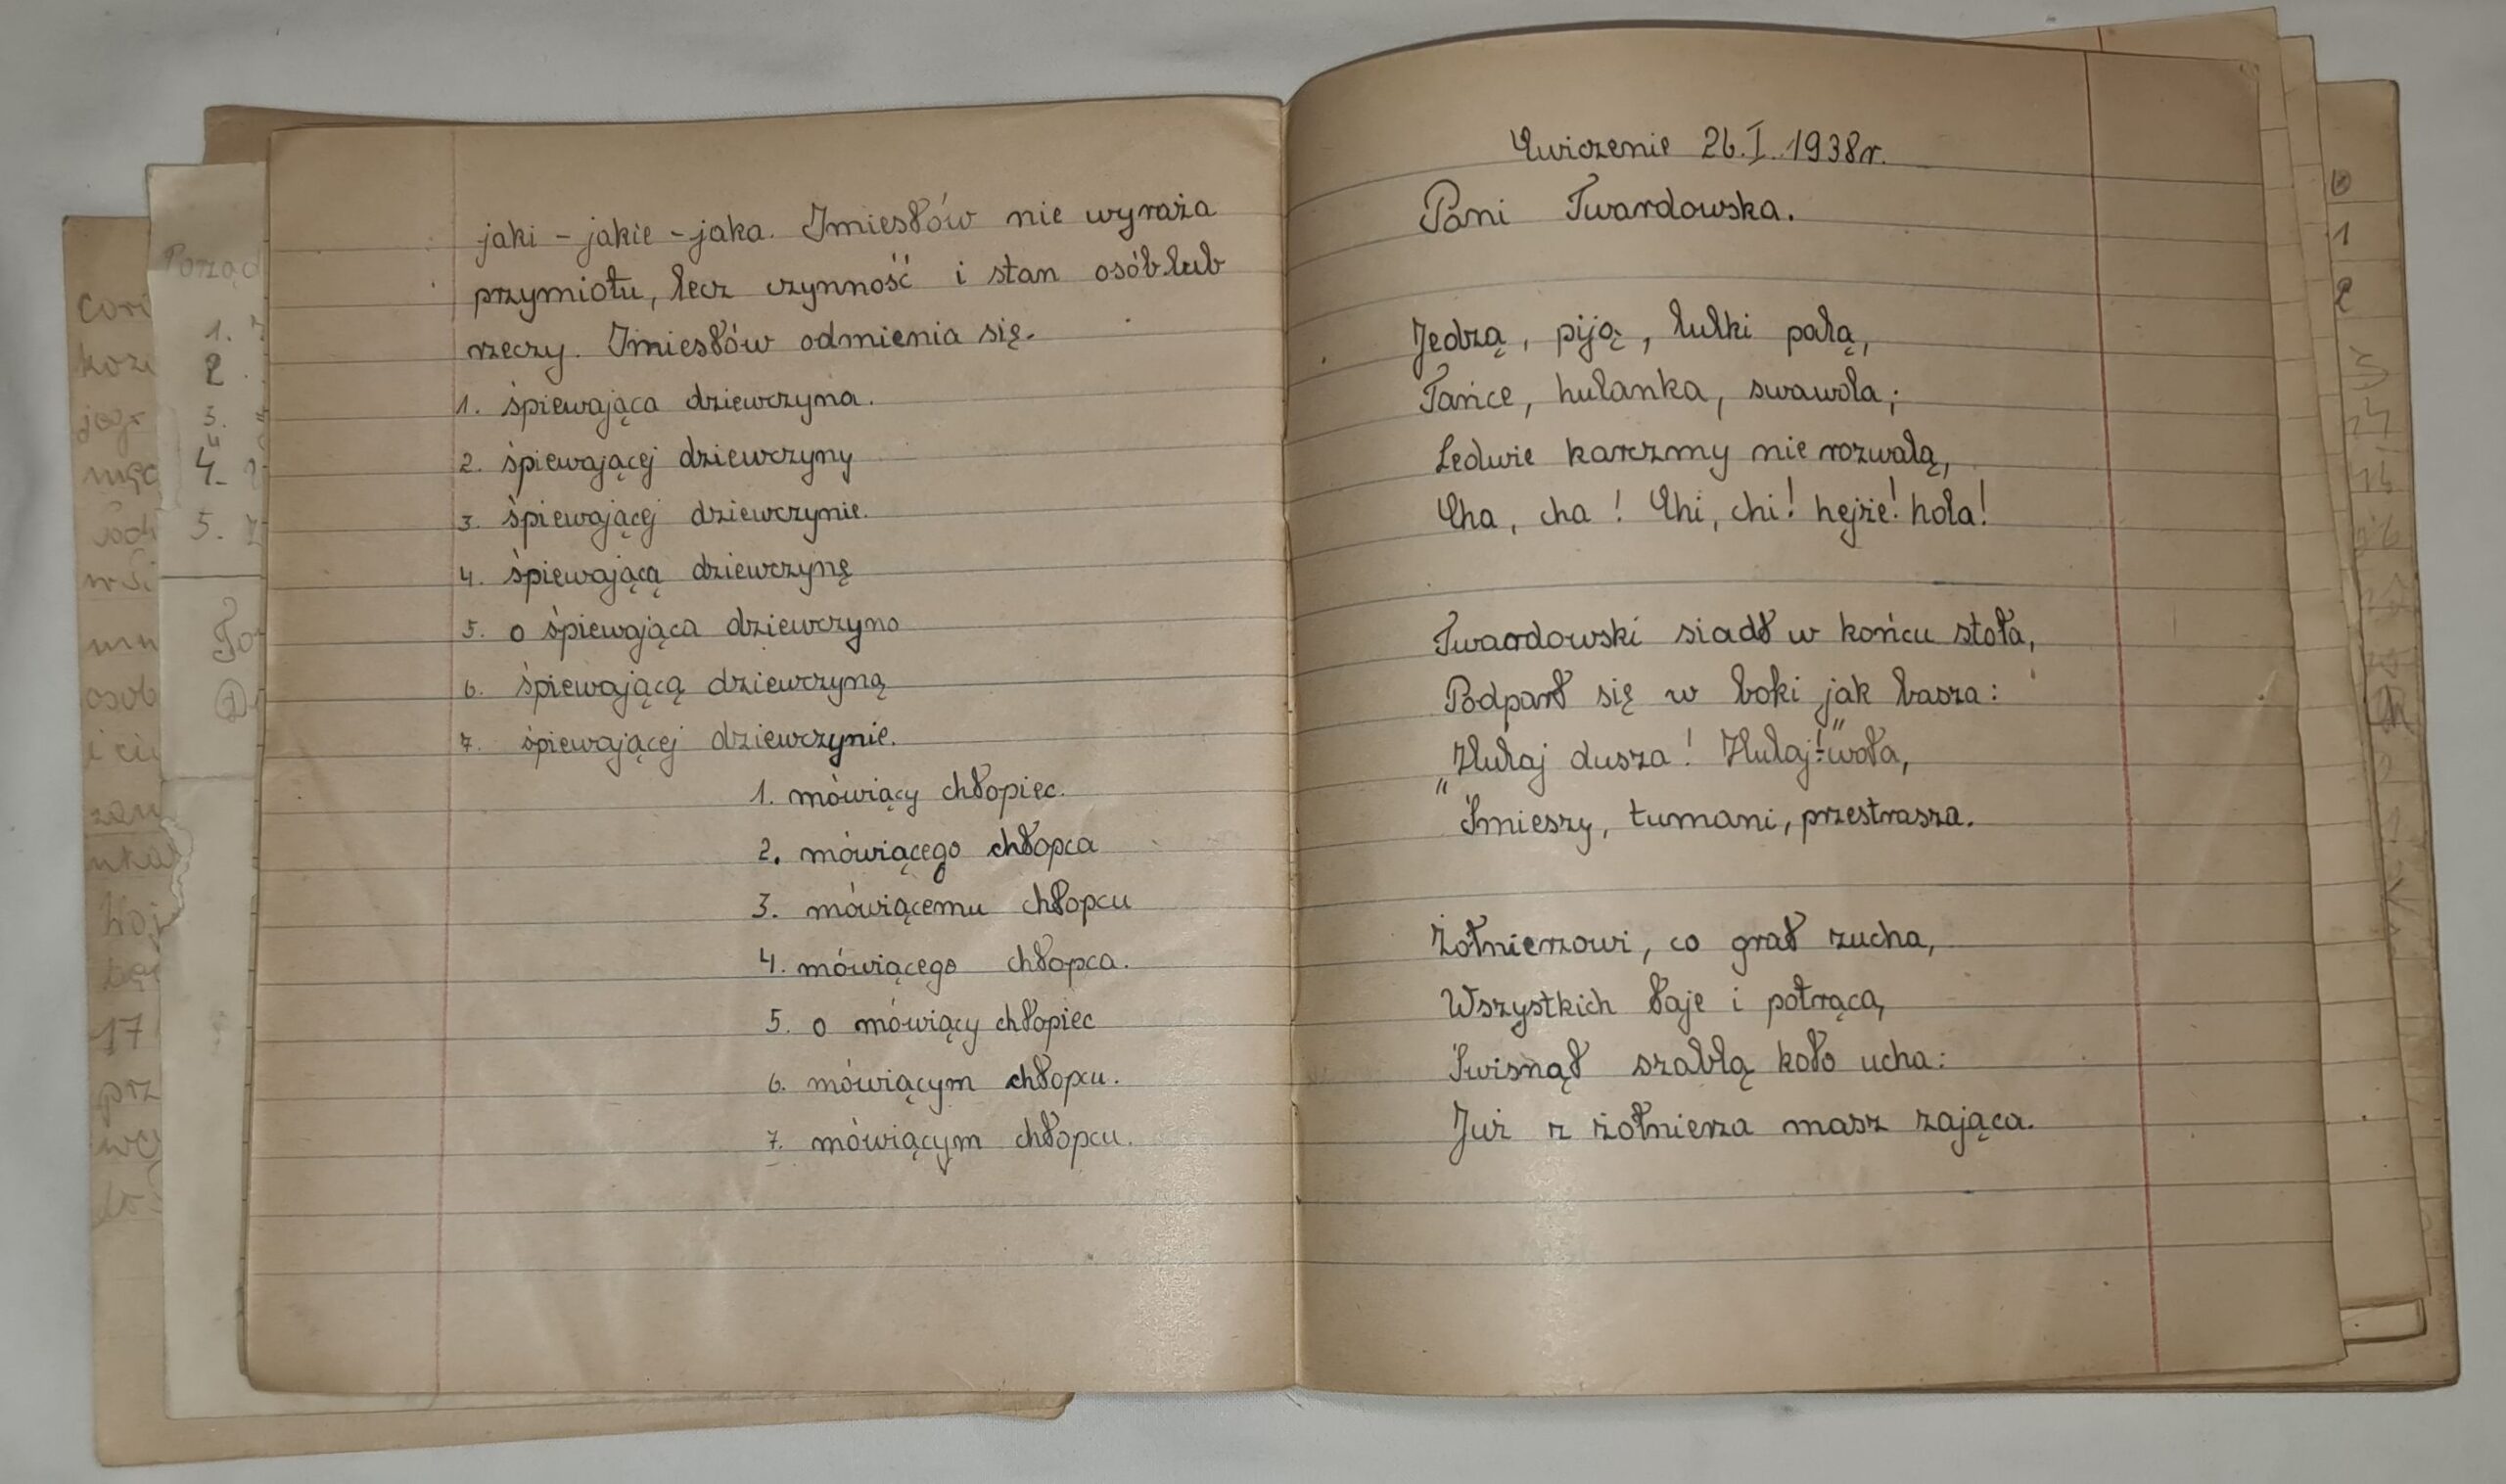 jaki - jakie - jaka. Imiesłów nie wyraża
przymiotu, lecz czynność i stan osób lub
rzeczy. Imiesłów odmienia się.
1. śpiewająca dziewczyna.
2. śpiewającej dziewczyny
3. śpiewającej dziewczynie.
4. śpiewającą dziewczynę
5. o śpiewająca dziewczyno
6. śpiewającą dziewczyną
7. śpiewającej dziewczynie.
1. mówiący chłopiec.
2. mówiącego chłopca
3. mówiącemu chłopcu
4. mówiącego chłopca.
5. o mówiący chłopiec
6. mówiącym chłopcu.
7. mówiącym chłopcu.
Ćwiczenie 26.I.1938r.
Pani Twardowska.
Jedzą, piją, lulki palą,
Tańce, hulanka, swawola;
Ledwie karczmy nie rozwalą,
Cha, cha! Chi, chi! hejże! hola!
Twardowski siadł w końcu stoła,
Podparł się w boki jak basza:
„Hulaj dusza! Hulaj!" woła,
Śmieszy, tumani, przestrasza.
Żołnierzowi, co grał zucha,
Wszystkich łaje i potrąca,
Świsnął szablą koło ucha:
Już z żołnierza masz zająca.
1.
2
3.
4.
5.
17
1
2